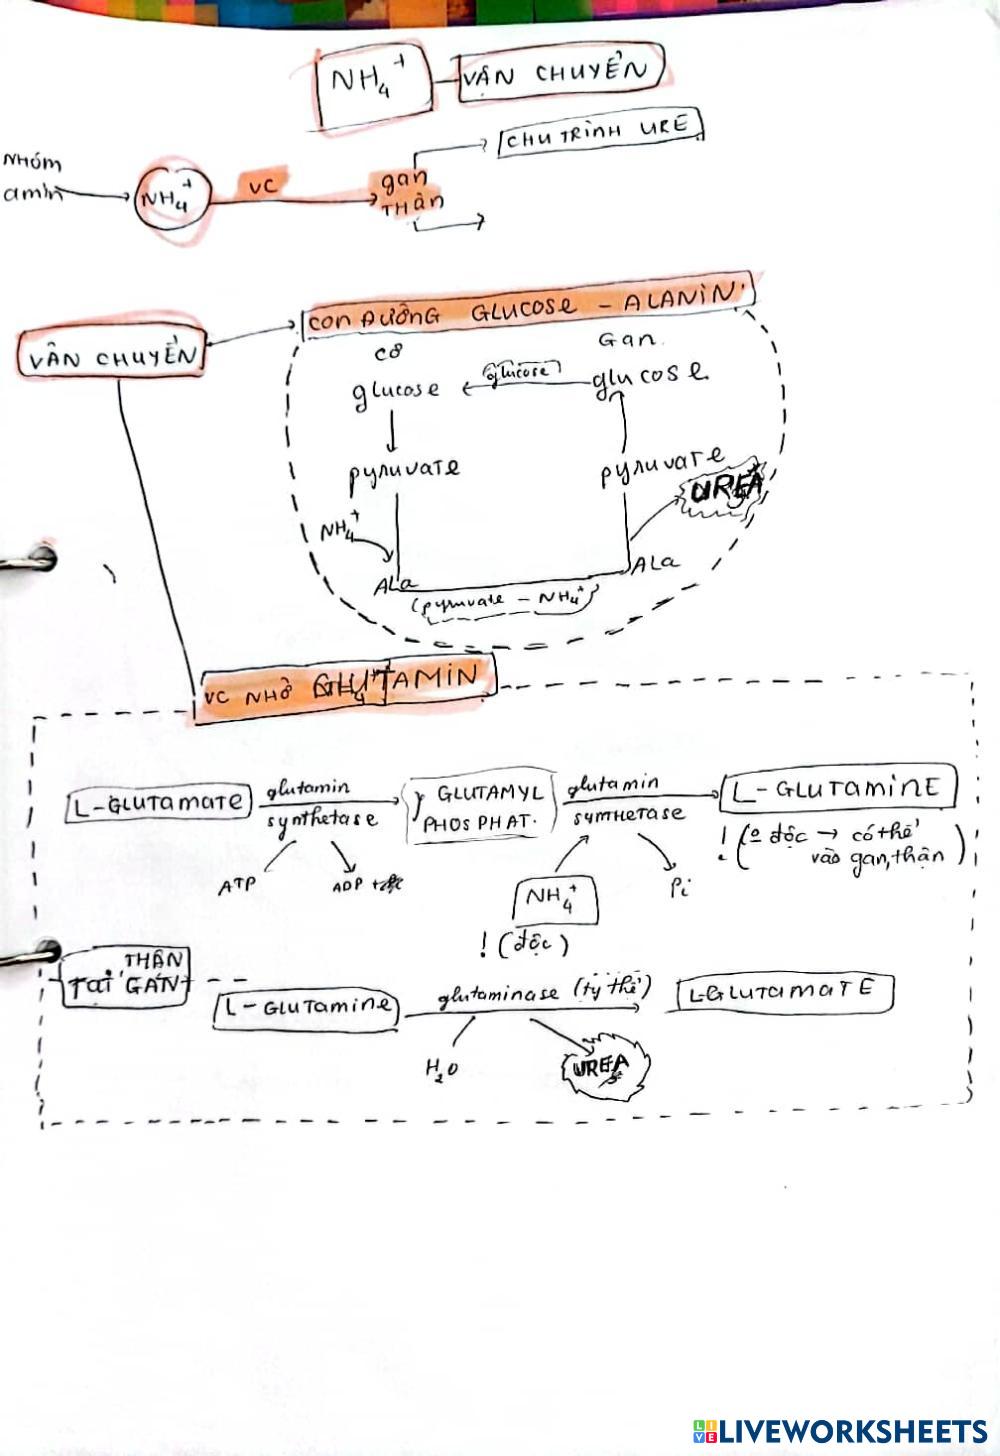 NH₄⁺ VẬN CHUYỂN
CHU TRÌNH URE
NHÓM
amin
NH₄⁺
VC
gan
THẬN
CON ĐƯỜNG GLUCOSE - ALANIN
VẬN CHUYỂN
cơ
Gan
glucose
glucose
glucose
pyruvate
pyruvate
UREA
NH₄⁺
ALa
ALa
(pyruvate - NH₄⁺)
VC NHỜ GLUTAMIN
L-GLUTAMATE
glutamin
synthetase
ATP
ADP
γ GLUTAMYL
PHOSPHAT.
glutamin
SYNTHETASE
NH₄⁺
! (độc)
Pi
L-GLUTAMINE
! (º độc → có thể
vào gan, thận)
THẬN
TẠI GAN
L-GLUTAMINE
glutaminase (ty thể)
H₂O
UREA
L-GLUTAMATE
LIVEWORKSHEETS